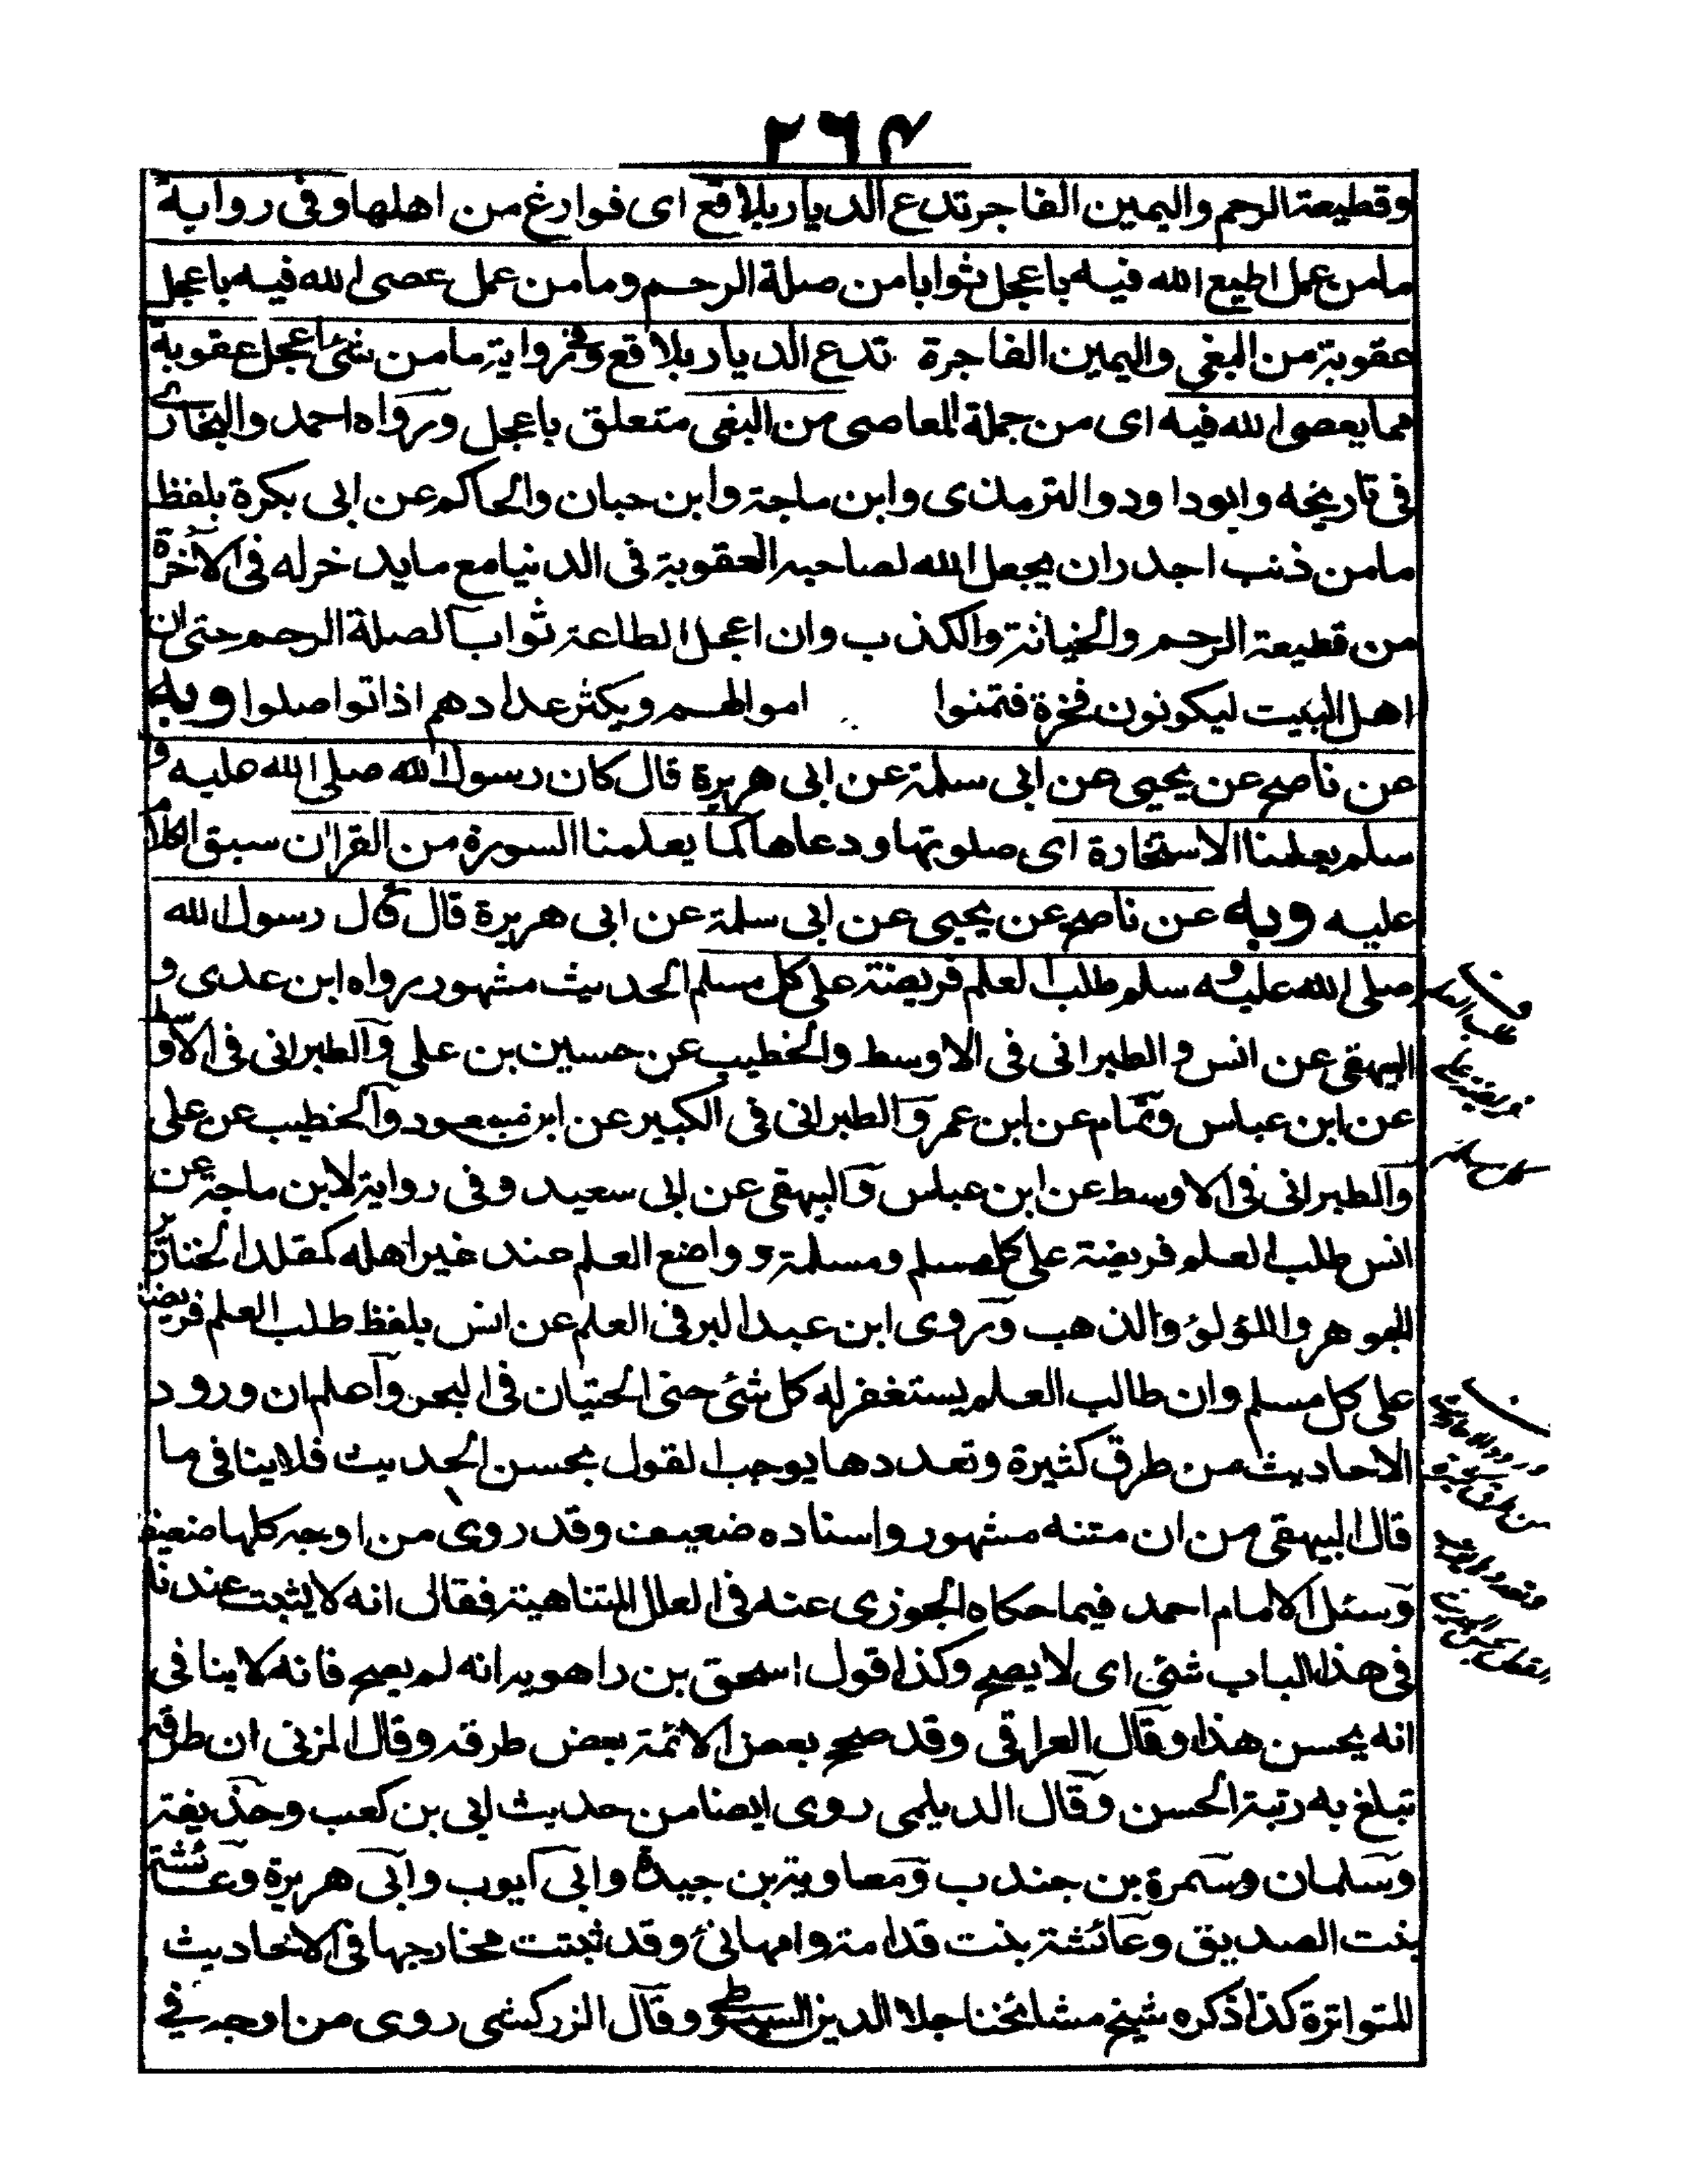 ۲۶۴
وقطيعة الرحم واليمين الفاجر تدع الديار بلاقع اى فوارغ من اهلها وفى رواية
مامن عمل اطيع الله فيه باعجل ثوابا من صلة الرحم ومامن عمل عصى الله فيه باعجل
عقوبة من البغى واليمين الفاجرة تدع الديار بلاقع وفى رواية مامن شئ اعجل عقوبة
مما يعصى الله فيه اى من جملة المعاصى من البغى متعلق باعجل ورواه احمد والبخارى
فى تاريخه وابوداود والترمذى وابن ماجة وابن حبان والحاكم عن ابى بكرة بلفظ
مامن ذنب اجدر ان يجعل الله لصاحبه العقوبة فى الدنيا مع مايدخر له فى الآخرة
من قطيعة الرحم والخيانة والكذب وان اعجل الطاعة ثوابا لصلة الرحم حتى ان
اهل البيت ليكونون فخرة فتمنوا اموالهم ويكثر عدادهم اذا تواصلوا وبه
عن ناصح عن يحيى عن ابى سلمة عن ابى هريرة قال كان رسول الله صلى الله عليه و
سلم يعلمنا الاستخارة اى صلوتها ودعاها كما يعلمنا السورة من القران سبق الكلام
عليه وبه عن ناصح عن يحيى عن ابى سلمة عن ابى هريرة قال قال رسول الله
صلى الله عليه و سلم طلب العلم فريضة على كل مسلم الحديث مشهور رواه ابن عدى و
البيهقى عن انس والطبرانى فى الاوسط والخطيب عن حسين بن على والطبرانى فى الاوسط
عن ابن عباس وتمام عن ابن عمر والطبرانى فى الكبير عن ابن مسعود والخطيب عن على
والطبرانى فى الاوسط عن ابن عباس والبيهقى عن ابى سعيد وفى رواية لابن ماجة عن
انس طلب العلم فريضة على كل مسلم ومسلمة و واضع العلم عند غير اهله كمقلد الخنازير
الجوهر واللؤلؤ والذهب وروى ابن عبد البر فى العلم عن انس بلفظ طلب العلم فريضة
على كل مسلم وان طالب العلم يستغفر له كل شئ حتى الحتيان فى البحر واعلم ان ورود
الاحاديث من طرق كثيرة وتعددها يوجب القول بحسن الحديث فلاينافى ما
قال البيهقى من ان متنه مشهور واسناده ضعيف وقد روى من اوجه كلها ضعيف
وسئل الامام احمد فيما حكاه الجوزى عنه فى العلل المتناهية فقال انه لايثبت عندنا
فى هذا الباب شئ اى لايصح وكذا قول اسحق بن راهويه انه لم يصح فانه لاينافى
انه يحسن هذا وقال العراقى وقد صحح بعض الائمة بعض طرقه وقال المزنى ان طرقه
تبلغ به رتبة الحسن وقال الديلمى روى ايضا من حديث ابى بن كعب وحذيفة
وسلمان وسمرة بن جندب ومعاوية بن جيدة وابى ايوب وابى هريرة وعائشة
بنت الصديق وعائشة بنت قدامة وامهانئ وقد ثبتت مخارجها فى الاحاديث
المتواترة كذا ذكره شيخ مشائخنا جلا الدين السيوطى وقال الزركشى روى من اوجه فى
طلب العلم
فريضة على
كل مسلم
ورود الاحاديث
من طرق كثيرة
وتعددها يوجب
القول بحسن الحديث